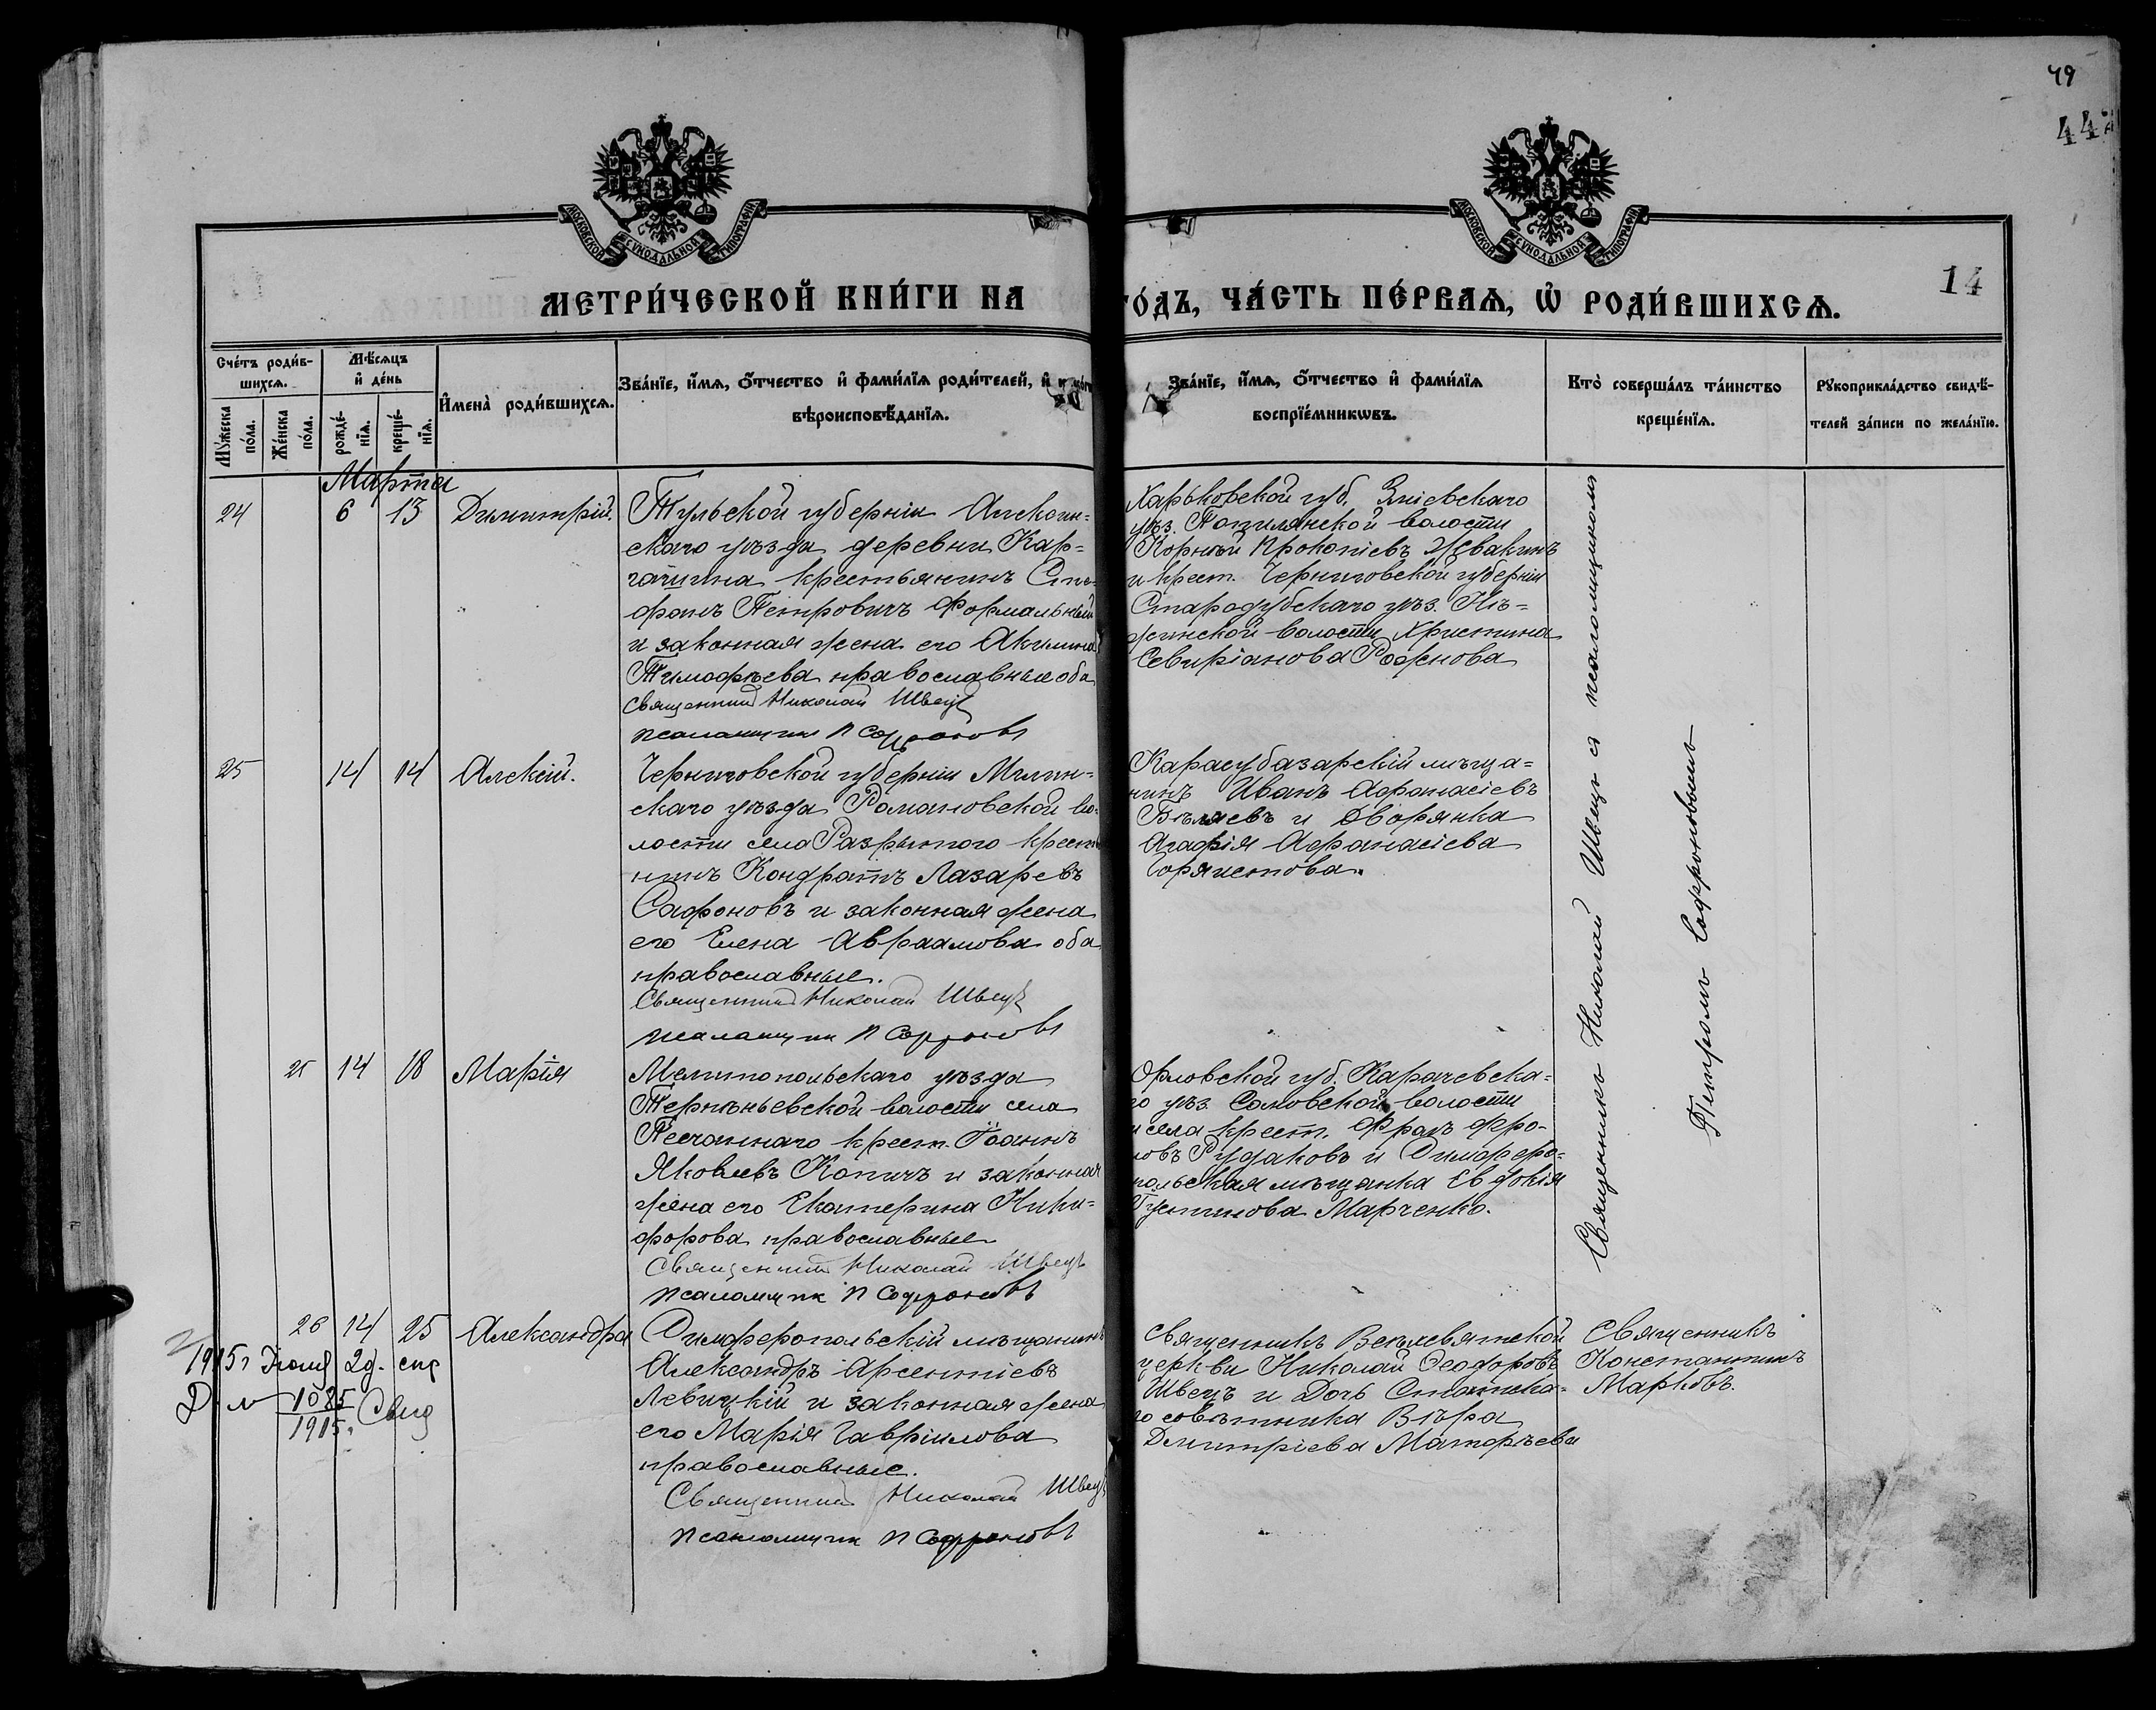 49
442
14
МОСКОВСКОЙ СУНОДАЛЬНОЙ ТИПОГРАФІИ
МОСКОВСКОЙ СУНОДАЛЬНОЙ ТИПОГРАФІИ
МЕТРИ́ЧЕСКОЙ КНИ́ГИ НА
ГО́ДЪ, ЧА́СТЬ ПЕ́РВАѦ, Ѡ҆ РОДИ́ВШИХСѦ.
Сче́тъ роди́в-
шихсѧ.
Мѣ́сѧцъ
и҆ де́нь
Мꙋ́жеска
по́ла.
Же́нска
по́ла.
рожде́-
нїѧ.
креще́-
нїѧ.
И҆мена̀ роди́вшихсѧ.
Зва́нїе, и҆́мѧ, ѻ҆́тчество и҆ фами́лїѧ роди́телей, и҆
вѣроисповѣ́данїѧ.
Зва́нїе, и҆́мѧ, ѻ҆́тчество и҆ фами́лїѧ
воспрїе́мникѡвъ.
Кто̀ соверша́лъ та́инство
креще́нїѧ.
Рꙋкоприкла́дство свидѣ́-
телей за́писи по жела́нїю.
Марта
24 6 13 Димитрій.
Тульской губерніи Алексин=
скаго уѣзда деревни Кар=
крестьянинъ Сте-
фанъ Петровичъ Формальный
и законная жена его Акилина
Тимофѣева православные оба
Священникъ Николай Швецъ
псаломщик П Софроновъ
Харьковской губ. Зміевскаго
уѣз. волости
Корній Прокопіевъ Жевакинъ
и крест. Черниговской губерніи
Стародубскаго уѣз.
волости Христина
Севиріанова
25 14 14 Алексій.
Черниговской губерніи Мглин=
скаго уѣзда Романовской во-
лости села Разрытого крест
нинъ Кондратъ Лазаревъ
Сафоновъ и законная жена
его Елена Авраамова оба
православные.
Священникъ Николай Швецъ
псаломщик П Софроновъ
Карасубазарскій мѣща=
нинъ Иванъ Афанасіевъ
Бѣляевъ и Дворянка
Агафія Афанасіева
25 14 18 Марія
Мелитопольскаго уѣзда
волости села
Песчаннаго крест. Іоаннъ
Яковлевъ Копичъ и законная
жена его Екатерина Ники=
форова православные
Священникъ Николай Швецъ
псаломщик П Софроновъ
Орловской губ. Карачевска=
го уѣз. волости
села крест. Фро-
ловъ Рудаковъ и Симферо=
польская мѣщанка Евдокія
Устинова Марченко.
Священникъ Николай Швецъ и псаломщикомъ
Петромъ Софроновымъ
26 14 25 Александра
Симферопольскій мѣщанинъ
Александръ Арсентіевъ
Левицкій и законная жена
его Марія Гавріилова
православные.
Священникъ Николай Швецъ
псаломщик П Софроновъ
Священникъ Всѣхсвятской
церкви Николай Ѳеодоровъ
Швецъ и Дочь Статска=
го совѣтника Вѣра
Дмитріева Матфѣева
Священникъ
Константинъ
Марковъ.
1915г
1085
1915.